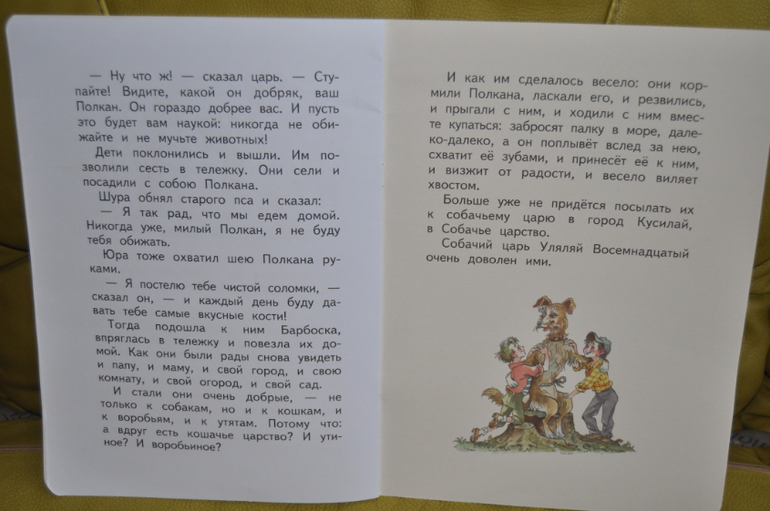 — Ну что ж! — сказал царь. — Сту-
пайте! Видите, какой он добряк, ваш
Полкан. Он гораздо добрее вас. И пусть
это будет вам наукой: никогда не оби-
жайте и не мучьте животных!
Дети поклонились и вышли. Им по-
зволили сесть в тележку. Они сели и
посадили с собою Полкана.
Шура обнял старого пса и сказал:
— Я так рад, что мы едем домой.
Никогда уже, милый Полкан, я не буду
тебя обижать.
Юра тоже охватил шею Полкана ру-
ками.
— Я постелю тебе чистой соломки, —
сказал он, — и каждый день буду да-
вать тебе самые вкусные кости!
Тогда подошла к ним Барбоска,
впряглась в тележку и повезла их до-
мой. Как они были рады снова увидеть
и папу, и маму, и свой город, и свою
комнату, и свой огород, и свой сад.
И стали они очень добрые, — не
только к собакам, но и к кошкам, и
к воробьям, и к утятам. Потому что:
а вдруг есть кошачье царство? И ути-
ное? И воробьиное?
И как им сделалось весело: они кор-
мили Полкана, ласкали его, и резвились,
и прыгали с ним, и ходили с ним вмес-
те купаться: забросят палку в море, дале-
ко-далеко, а он поплывёт вслед за нею,
схватит её зубами, и принесёт её к ним,
и визжит от радости, и весело виляет
хвостом.
Больше уже не придётся посылать их
к собачьему царю в город Кусилай,
в Собачье царство.
Собачий царь Уляляй Восемнадцатый
очень доволен ими.